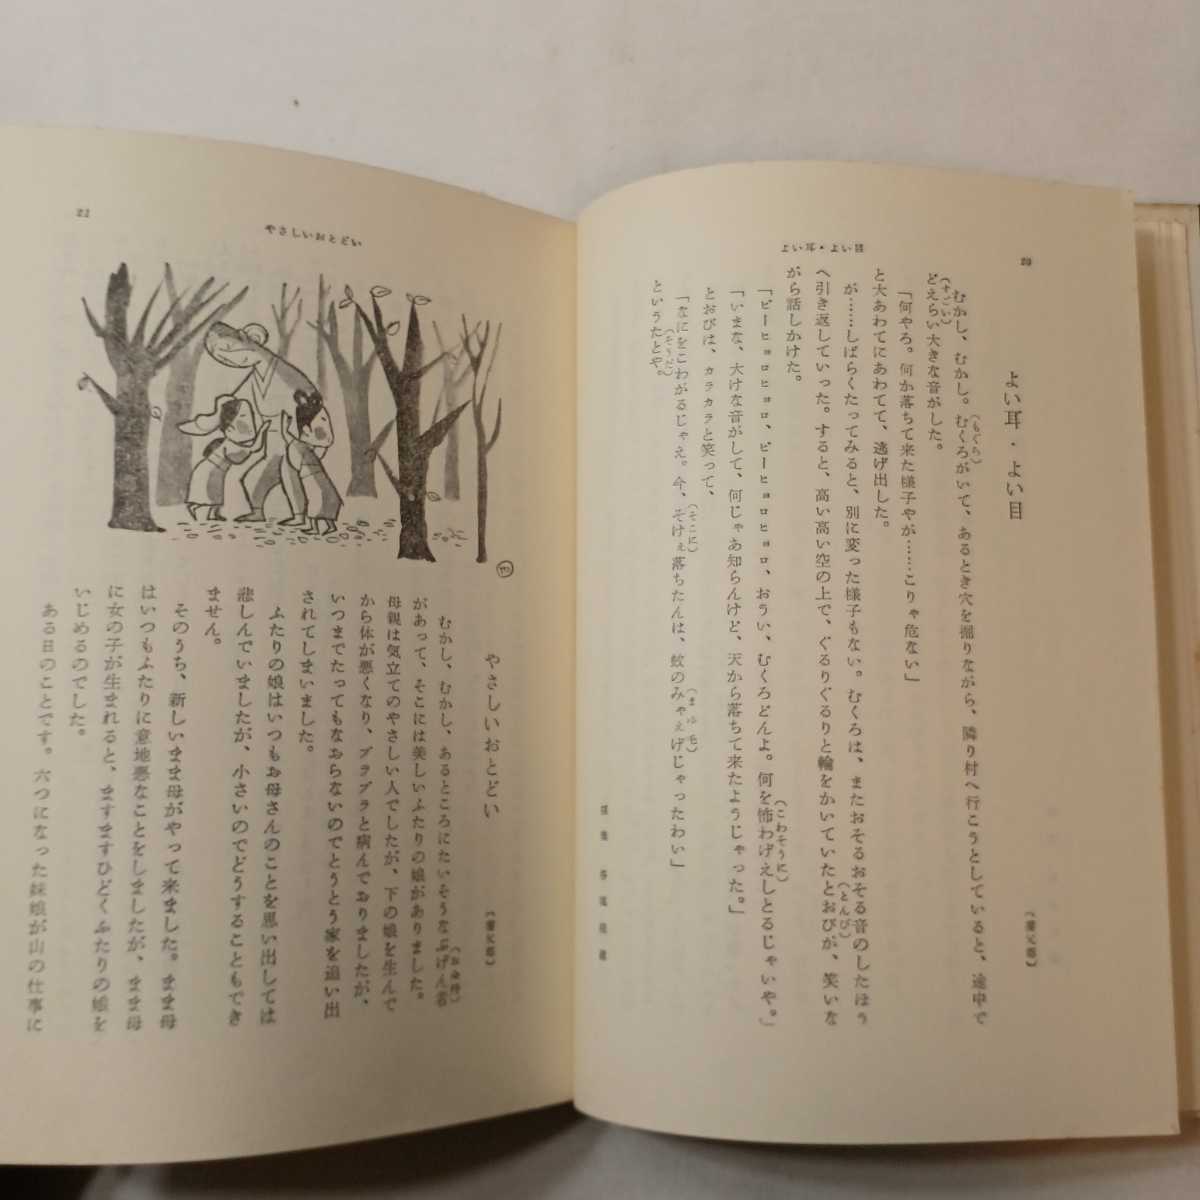 20
よい耳・よい目
よい耳・よい目
（養父郡）
むかし、むかし。むくろがいて、あるとき穴を掘りながら、隣り村へ行こうとしていると、途中で
（もぐら）
どえらい大きな音がした。
（すごい）
「何やろ。何か落ちて来た様子やが……こりゃ危ない」
と大あわてにあわてて、逃げ出した。
が……しばらくたってみると、別に変った様子もない。むくろは、またおそるおそる音のしたほう
へ引き返していった。すると、高い高い空の上で、ぐるりぐるりと輪をかいていたとおびが、笑いな
（とんび）
がら話しかけた。
「ピーヒョロヒョロ、ピーヒョロヒョロ、おうい、むくろどんよ。何を怖わげえしとるじゃいや。」
（こわそうに）
「いまな、大けな音がして、何じゃあ知らんけど、天から落ちて来たようじゃった。」
とおびは、カラカラと笑って、
「なにをこわがるじゃえ。今、そけぇ落ちたんは、蚊のみゃぇげじゃったわい」
（そこに）
（まゆ毛）
というたとや。
（そうだ）
21
やさしいおとどい
やさしいおとどい
（養父郡）
むかし、むかし、あるところにたいそうなぶげん者
（お金持）
があって、そこには美しいふたりの娘がありました。
母親は気立てのやさしい人でしたが、下の娘を生んで
から体が悪くなり、ブラブラと病んでおりましたが、
いつまでたってもなおらないのでとうとう家を追い出
されてしまいました。
ふたりの娘はいつもお母さんのことを思い出しては
悲しんでいましたが、小さいのでどうすることもでき
ません。
そのうち、新しいまま母がやって来ました。まま母
はいつもふたりに意地悪なことをしましたが、まま母
に女の子が生まれると、ますますひどくふたりの娘を
いじめるのでした。
ある日のことです。六つになった妹娘が山の仕事に